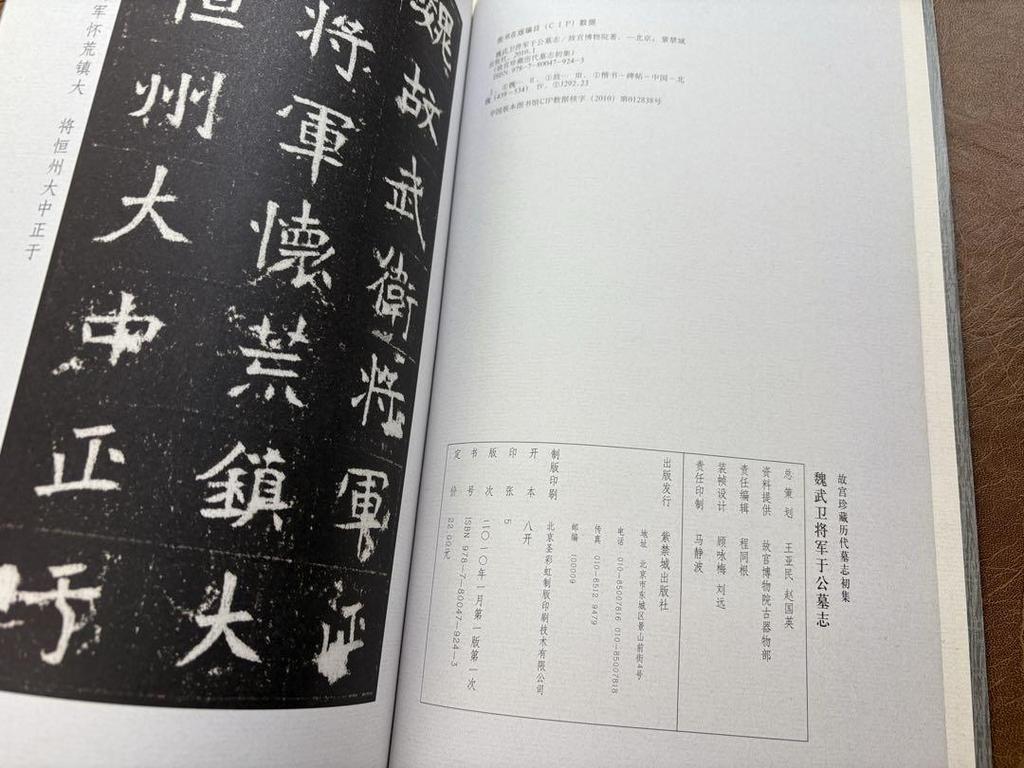 魏故武衛将軍征
将軍懷荒鎮大
恒州大中正于
军怀荒镇大
将恒州大中正于
图书在版编目(CIP)数据
魏武卫将军于公墓志/故宫博物院著.—北京:紫禁城
出版社,2010.1
(故宫珍藏历代墓志初集)
ISBN 978-7-80047-924-3
Ⅰ.①魏… Ⅱ.①故… Ⅲ.①楷书-碑帖-中国-北
魏(439~534) Ⅳ.①J292.23
中国版本图书馆CIP数据核字(2010)第012838号
故宫珍藏历代墓志初集
魏武卫将军于公墓志
总策划 王亚民 赵国英
资料提供 故宫博物院古器物部
责任编辑 程同根
装帧设计 顾咏梅 刘远
责任印制 马静波
出版发行 紫禁城出版社
地址 北京市东城区景山前街4号
电话 010-85007816 010-85007818
传真 010-6512 9479
邮编 100009
制版印刷 北京圣彩虹制版印刷技术有限公司
开本 八开
印张 5
版次 二〇一〇年一月第一版第一次
书号 ISBN 978-7-80047-924-3
定价 22.00元